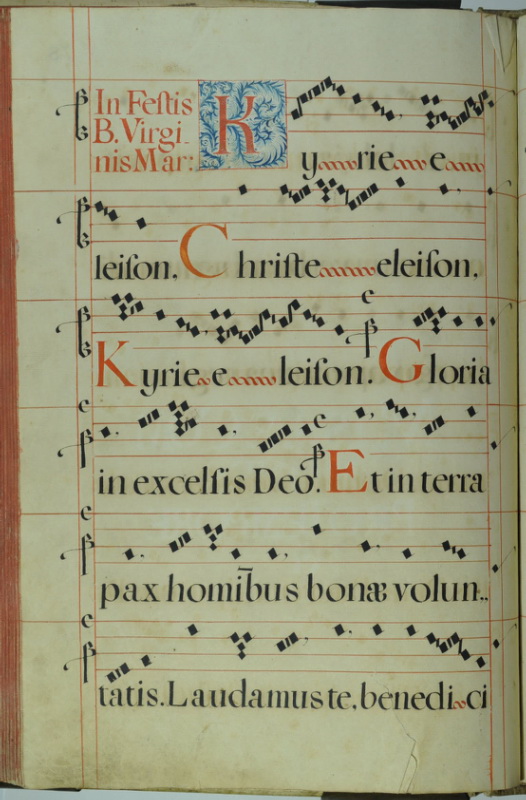 In Festis
B. Virgi-
nis Mar:
Kyrie e
leiſon. Chriſte eleiſon.
Kyrie e leiſon. Gloria
in excelſis Deo. Et in terra
pax homi̅bus bonæ volun..
tatis. Laudamus te. benedi ci